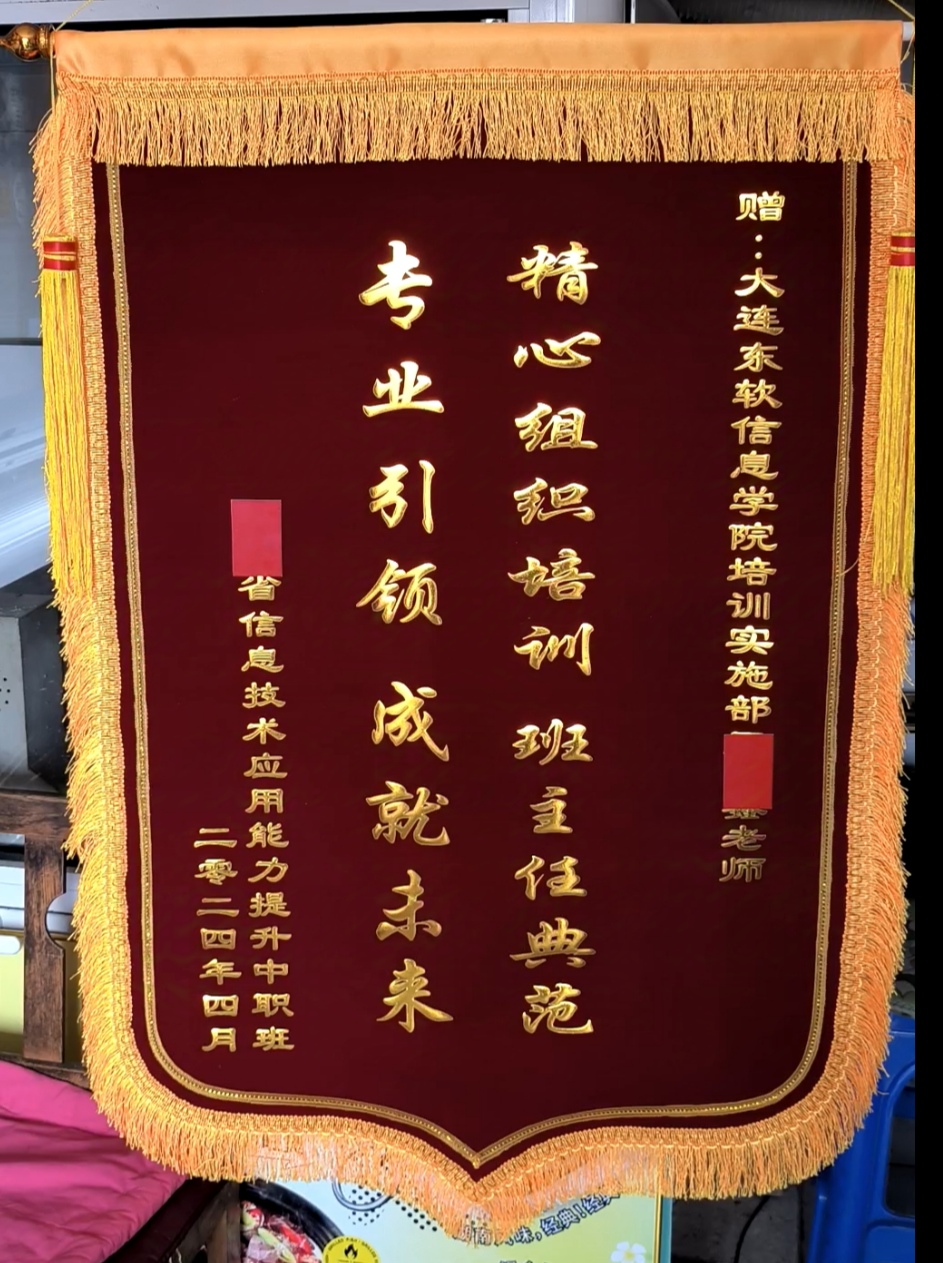 赠：大连东软信息学院培训实施部
老师
精心组织培训 班主任典范
专业引领 成就未来
省信息技术应用能力提升中职班
二零二四年四月
味,经典!经